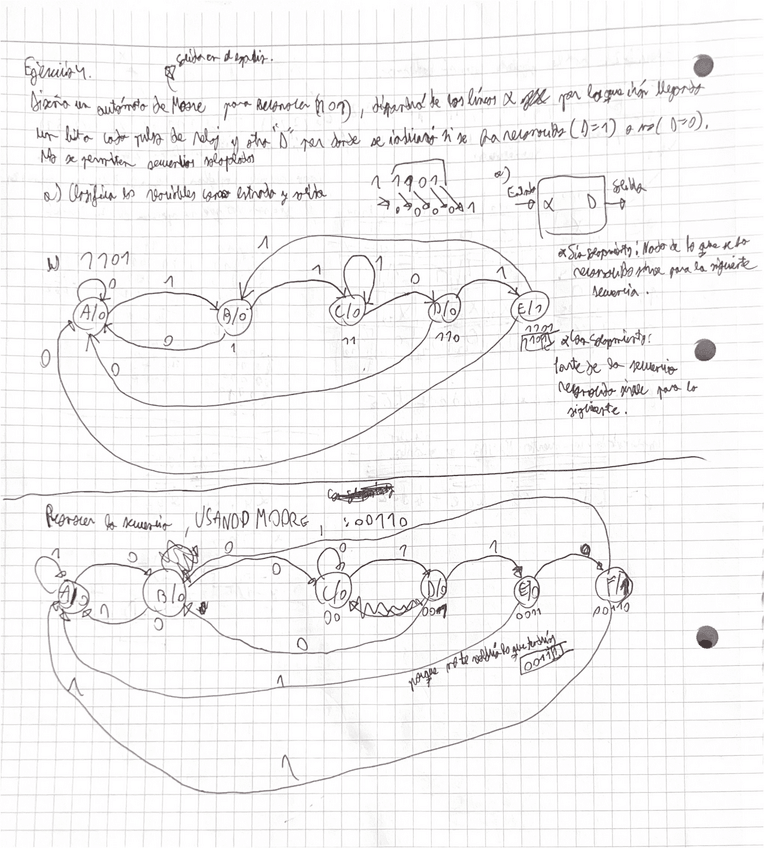 Ejercicio 4.
Salida en el estado.
Diseña un autómata de Moore para reconocer (1101), dispondrá de dos líneas α por la que irán llegando
un bit a cada pulso de reloj y otra "D" por donde se indicará si se ha reconocido (D=1) o no (D=0).
No se permiten secuencias solapadas
a) Clasifica las variables como entrada y salida
1 1101
0 0 0 0 1
a)
Entrada
α D
Salida
b) 1101
*Sin solapamiento: Nada de lo que se ha
reconocido sirve para la siguiente
secuencia.
0 1 1 1 0 1 1
A/0 B/0 C/0 D/0 E/1
0 1 11 110 1101
0 0
*Con solapamiento:
Parte de la secuencia
reconocida sirve para la
siguiente.
Reconocer la secuencia, USANDO MOORE, :00110
1 0 0 0 0 1 1 0
A/0 B/0 C/0 D/0 E/0 F/1
1 0 00 001 0011 00110
0
porque no te valdría lo que tendrías
1
1